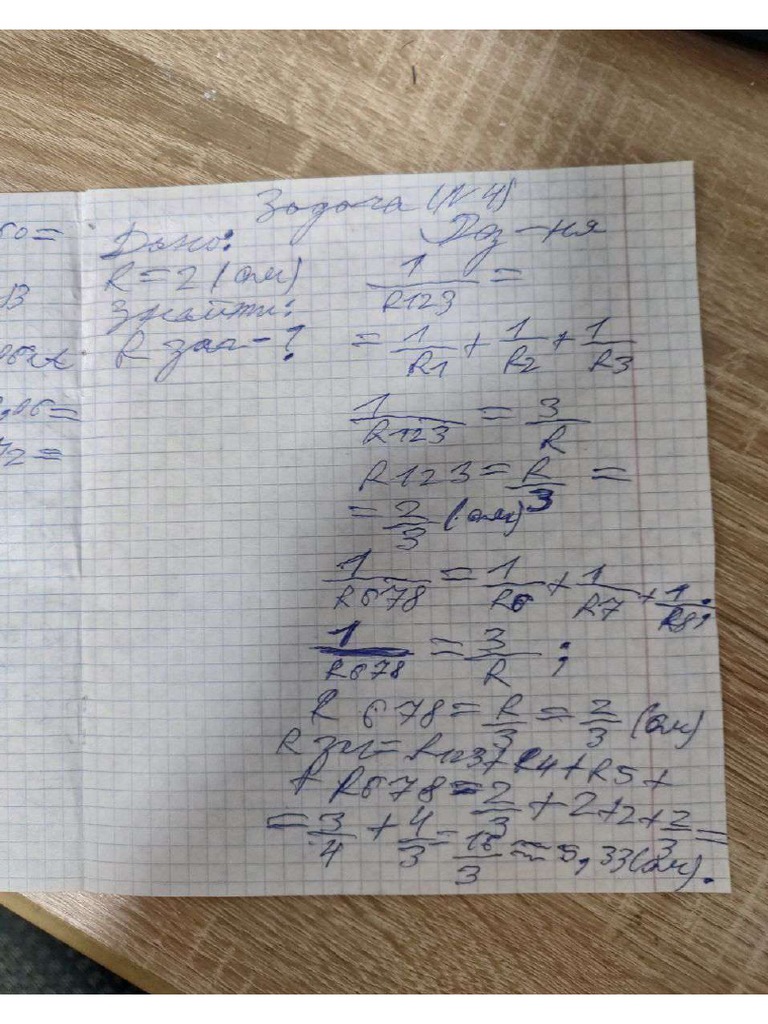 Задача (N4)
Дано:
Роз-ня
R = 2 (ом)
Знайти:
R заг - ?
1/R123 =
= 1/R1 + 1/R2 + 1/R3
1/R123 = 3/R
R123 = R/3 =
= 2/3 (ом)
1/R678 = 1/R6 + 1/R7 + 1/R8;
1/R678 = 3/R ;
R 678 = R/3 = 2/3 (ом)
R заг = R123 + R4 + R5 +
+ R678 = 2/3 + 2 + 2 + 2/3 =
= 3/4 + 4/3 = 16/3 = 5,33 (ом).
50 =
В
06 =
72 =